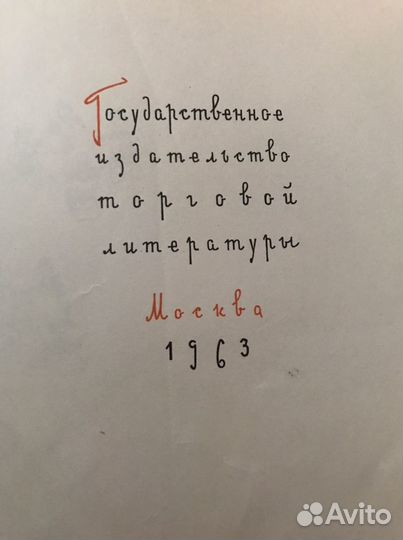 Государственное
издательство
торговой
литературы
Москва
1963
Avito